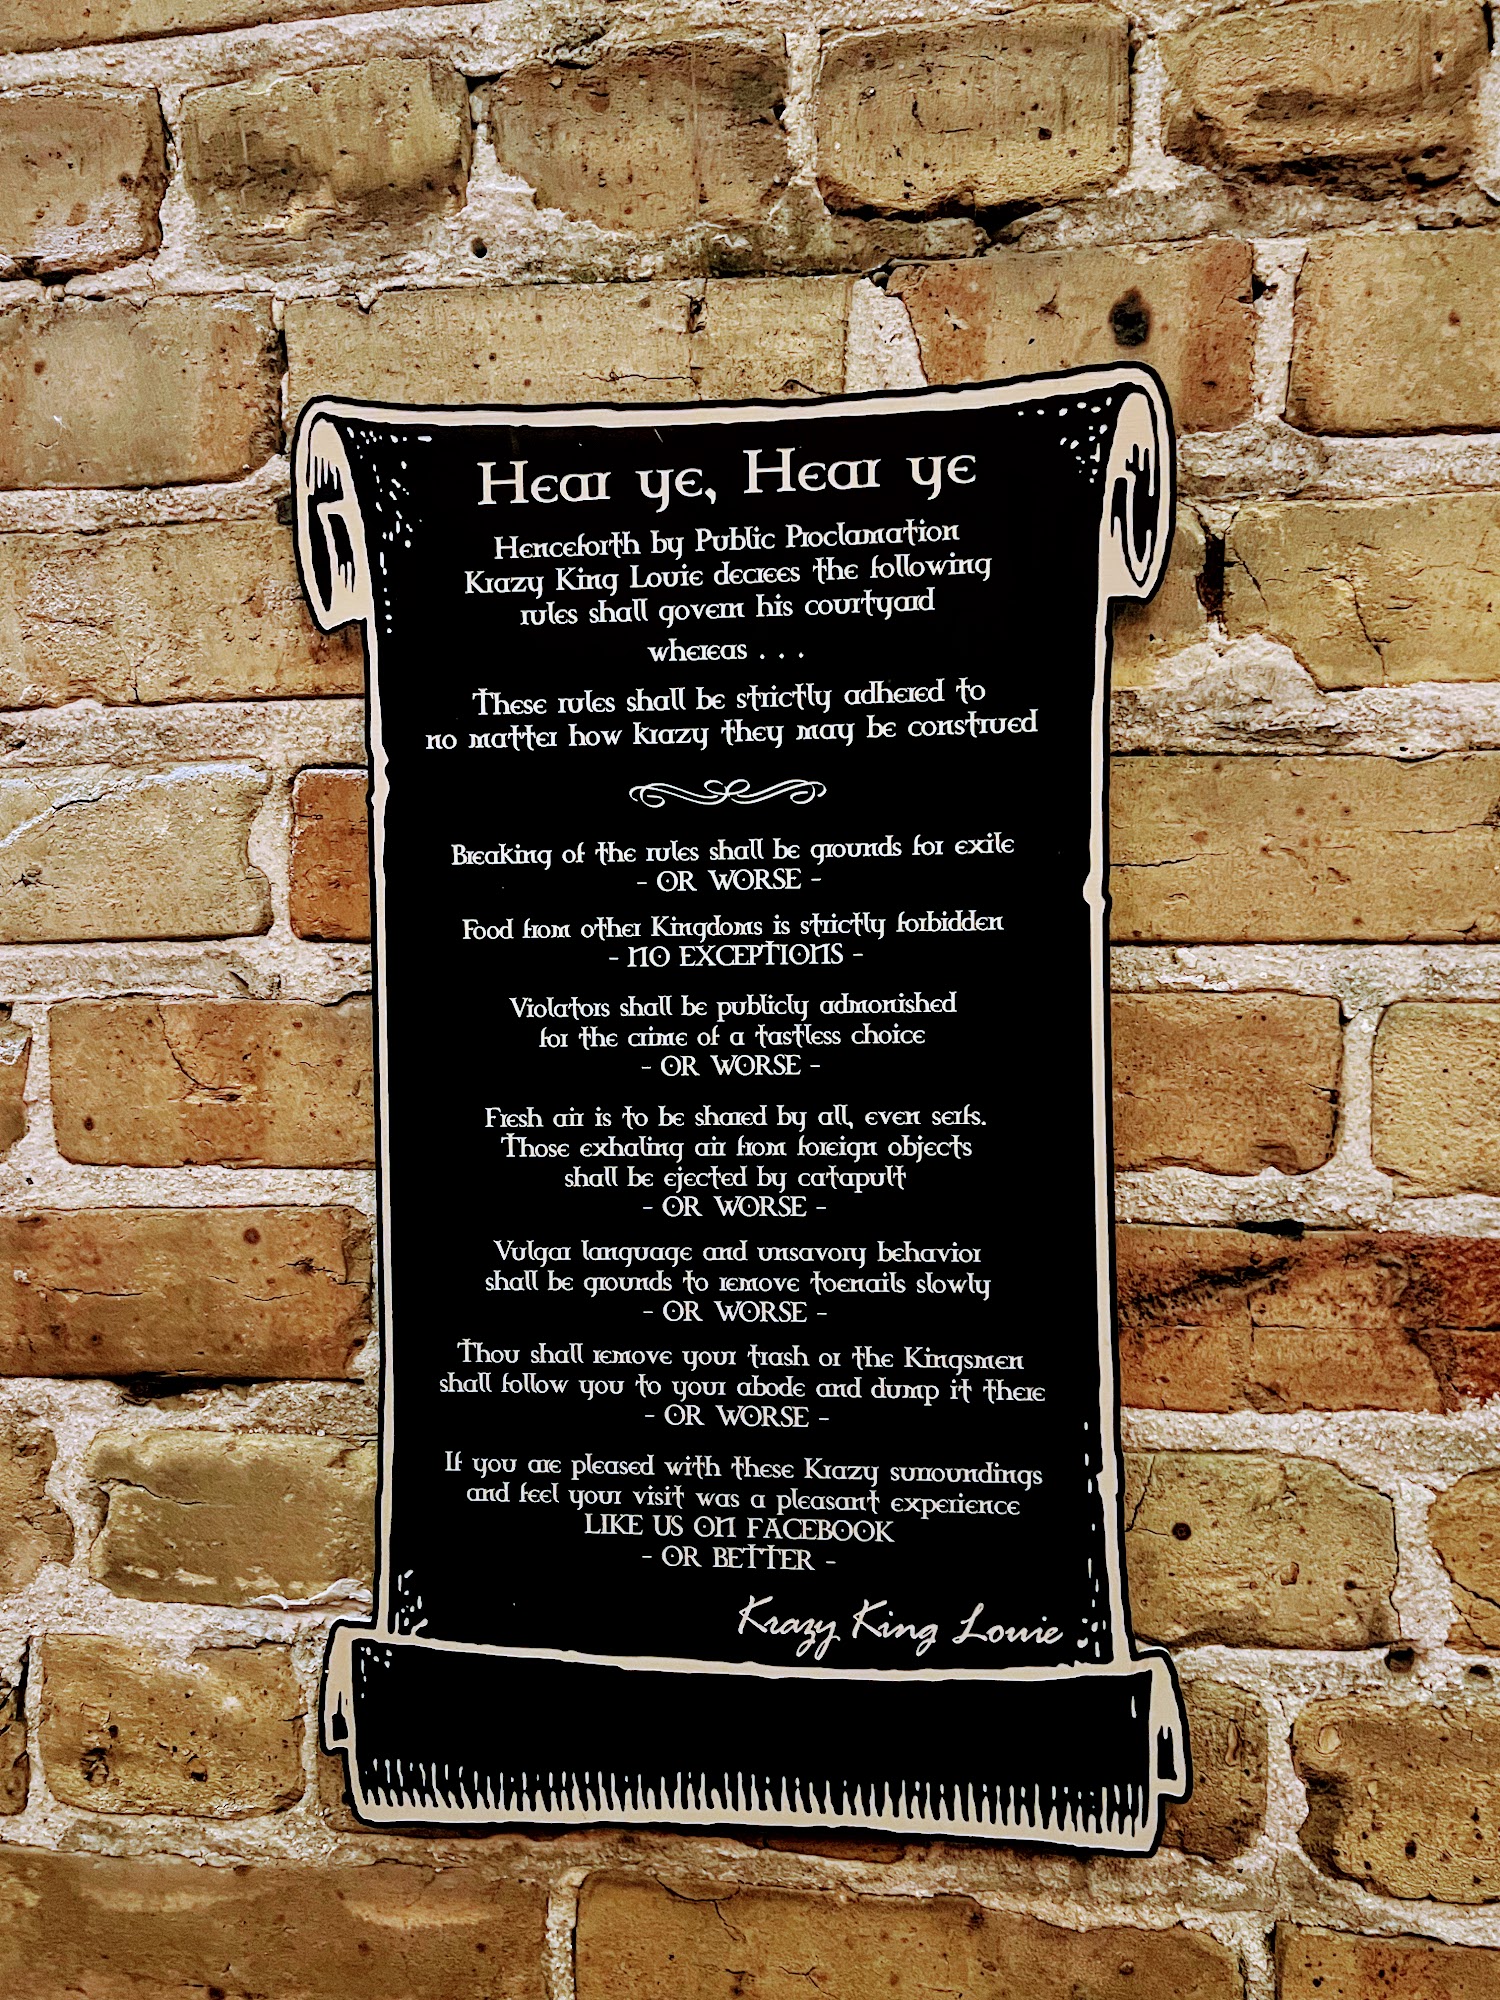 Hear ye, Hear ye
Henceforth by Public Proclamation
Krazy King Louie decrees the following
rules shall govern his courtyard
whereas . . .
These rules shall be strictly adhered to
no matter how krazy they may be construed
Breaking of the rules shall be grounds for exile
- OR WORSE -
Food from other Kingdoms is strictly forbidden
- NO EXCEPTIONS -
Violators shall be publicly admonished
for the crime of a tastless choice
- OR WORSE -
Fresh air is to be shared by all, even serfs.
Those exhaling air from foreign objects
shall be ejected by catapult
- OR WORSE -
Vulgar language and unsavory behavior
shall be grounds to remove toenails slowly
- OR WORSE -
Thou shall remove your trash or the Kingsmen
shall follow you to your abode and dump it there
- OR WORSE -
If you are pleased with these Krazy surroundings
and feel your visit was a pleasant experience
LIKE US ON FACEBOOK
- OR BETTER -
Krazy King Louie